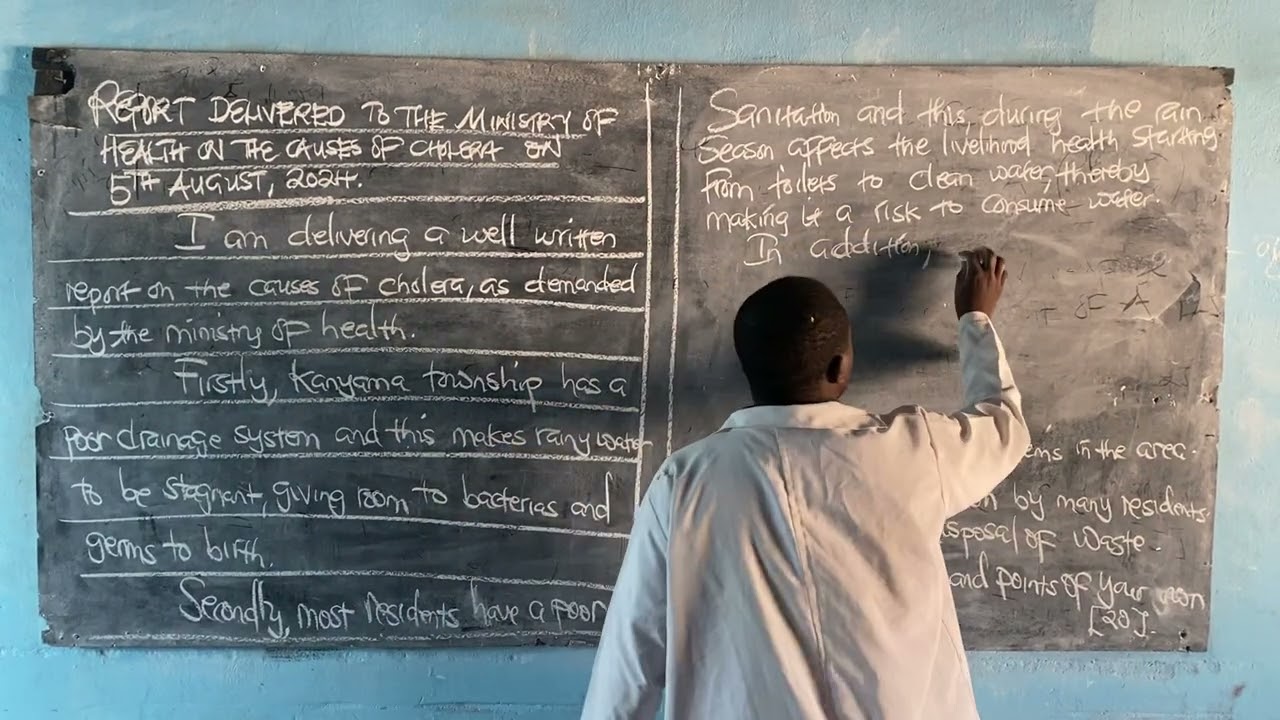 REPORT DELIVERED TO THE MINISTRY OF
HEALTH ON THE CAUSES OF CHOLERA ON
5TH AUGUST, 2024.
I am delivering a well written
report on the causes of cholera, as demanded
by the ministry of health.
Firstly, Kanyama township has a
poor drainage system and this makes rainy water
to be stagnant, giving room to bacterias and
germs to birth.
Secondly, most residents have a poor
Sanitation and this, during the rain
Season affects the livelihood health starting
from toilets to clean water, thereby
making it a risk to consume water.
In addition,
ems in the area.
by many residents.
sposal of waste.
and points of your own
[20].